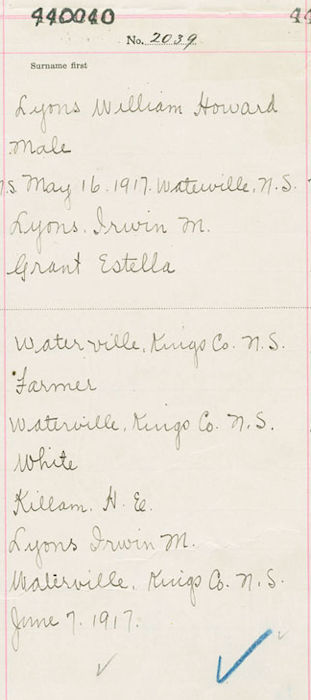 440040 44
No. 2039
Surname first
Lyons William Howard
Male
May 16. 1917. Waterville, N.S.
Lyons. Irwin M.
Grant Estella
Waterville, Kings Co. N.S.
Farmer
Waterville, Kings Co. N.S.
White
Killam. H. E.
Lyons Irwin M.
Waterville. Kings Co. N.S.
June 7. 1917.